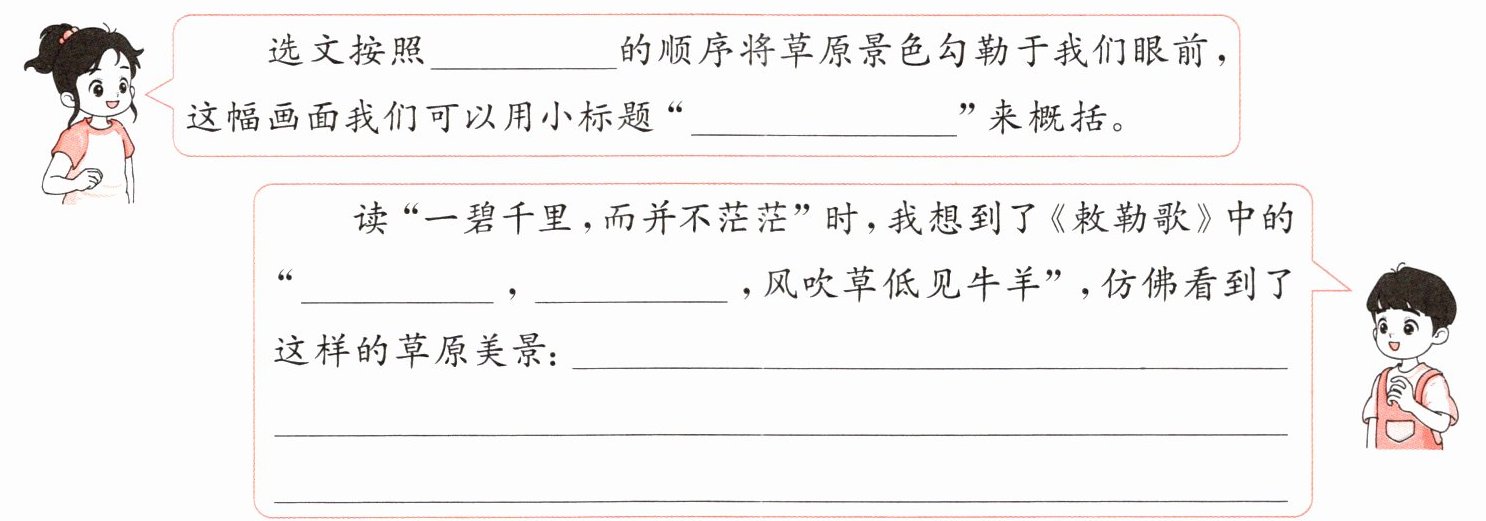 选文按照__________的顺序将草原景色勾勒于我们眼前，
这幅画面我们可以用小标题“______________”来概括。
读“一碧千里，而并不茫茫”时，我想到了《敕勒歌》中的
“__________，__________，风吹草低见牛羊”，仿佛看到了
这样的草原美景：______________________________________